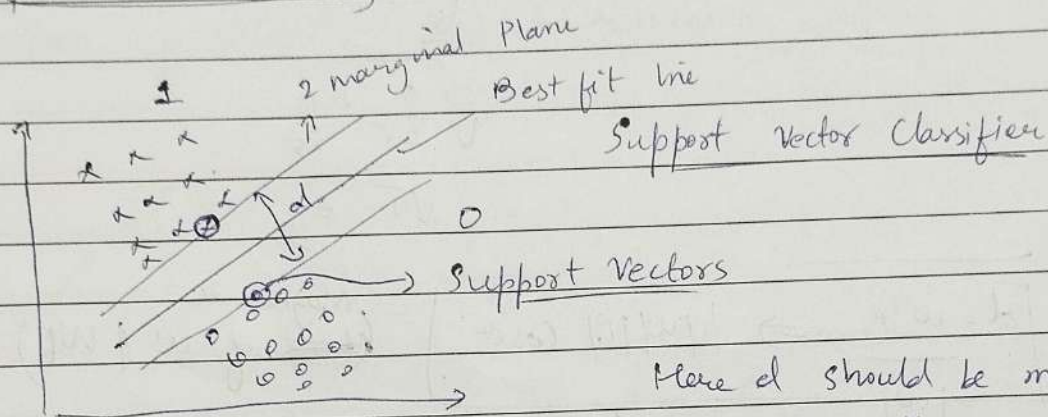 2 marginal Plane
1
Best fit line
Support Vector Classifier
d
0
Support Vectors
Here d should be